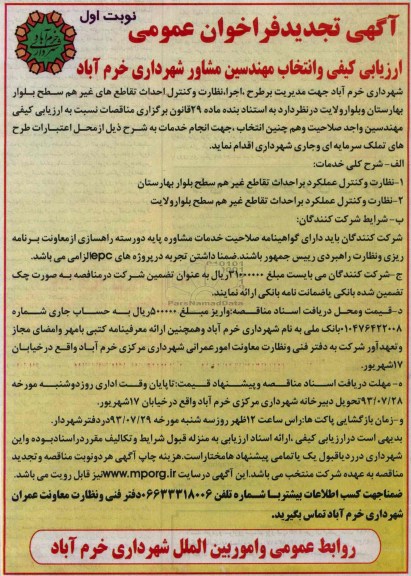 نوبت اول
آگهی تجدیدفراخوان عمومی
ارزیابی کیفی وانتخاب مهندسین مشاور شهرداری خرم آباد
شهرداری خرم آباد جهت مدیریت برطرح ،اجرا،نظارت وکنترل احداث تقاطع های غیر هم سطح بلوار
بهارستان وبلوارولایت درنظردارد به استناد بنده ماده ۲۹قانون برگزاری مناقصات نسبت به ارزیابی کیفی
مهندسین واجد صلاحیت وهم چنین انتخاب ،جهت انجام خدمات به شرح ذیل ازمحل اعتبارات طرح
های تملک سرمایه ای وجاری شهرداری اقدام نماید.
الف- شرح کلی خدمات:
۱-نظارت وکنترل عملکرد براحداث تقاطع غیر هم سطح بلوار بهارستان
۲-نظارت وکنترل عملکرد براحداث تقاطع غیر هم سطح بلوارولایت
ب- شرایط شرکت کنندگان:
شرکت کنندگان باید دارای گواهینامه صلاحیت خدمات مشاوره پایه دورسته راهسازی ازمعاونت برنامه
ریزی ونظارت راهبردی رییس جمهور باشند.ضمنا داشتن تجربه درپروژه های epcالزامی می باشد.
ج-شرکت کنندگان می بایست مبلغ ۳۱۰۰۰۰۰۰ریال به عنوان تضمین شرکت درمناقصه به صورت چک
تضمین شده بانکی یاضمانت نامه بانکی ارائه نمایند.
ParsNamadData
د-قیمت ومحل دریافت اسناد مناقصه:واریز مبلغ ۵۰۰۰۰۰ریال به حساب جاری شماره
۰۱۰۴۷۶۴۲۲۰۰۸بانک ملی به نام شهرداری خرم آباد وهمچنین ارائه معرفینامه کتبی بامهر وامضای مجاز
وتعهدآور شرکت به دفتر فنی ونظارت معاونت امورعمرانی شهرداری مرکزی خرم آباد واقع درخیابان
۱۷شهریور.
ه- مهلت دریافت اسناد مناقصه وپیشنهاد قیمت:تاپایان وقت اداری روزدوشنبه مورخه
۹۳/۰۷/۲۸تحویل دبیرخانه شهرداری مرکزی خرم آباد واقع درخیابان ۱۷شهریور.
و-زمان بازگشایی پاکت ها:راس ساعت ۱۲ظهر روزسه شنبه مورخه ۹۳/۰۷/۲۹دردفترشهردار.
بدیهی است درارزیابی کیفی ،ارائه اسناد ارزیابی به منزله قبول شرایط و تکالیف مقرردراسنادبوده واین
شهرداری درردیاقبول یک یاتمامی پیشنهاد هامختاراست.هزینه چاپ آگهی هردونوبت مناقصه و تجدید
مناقصه به عهده شرکت منتخب می باشد.این آگهی درسایت www.mporg.irنیز قابل رویت می باشد.
ضمناجهت کسب اطلاعات بیشتربا شماره تلفن ۰۶۶۳۳۳۱۸۰۰۶دفتر فنی ونظارت معاونت عمران
شهرداری خرم آباد تماس بگیرید.
روابط عمومی واموربین الملل شهرداری خرم آباد